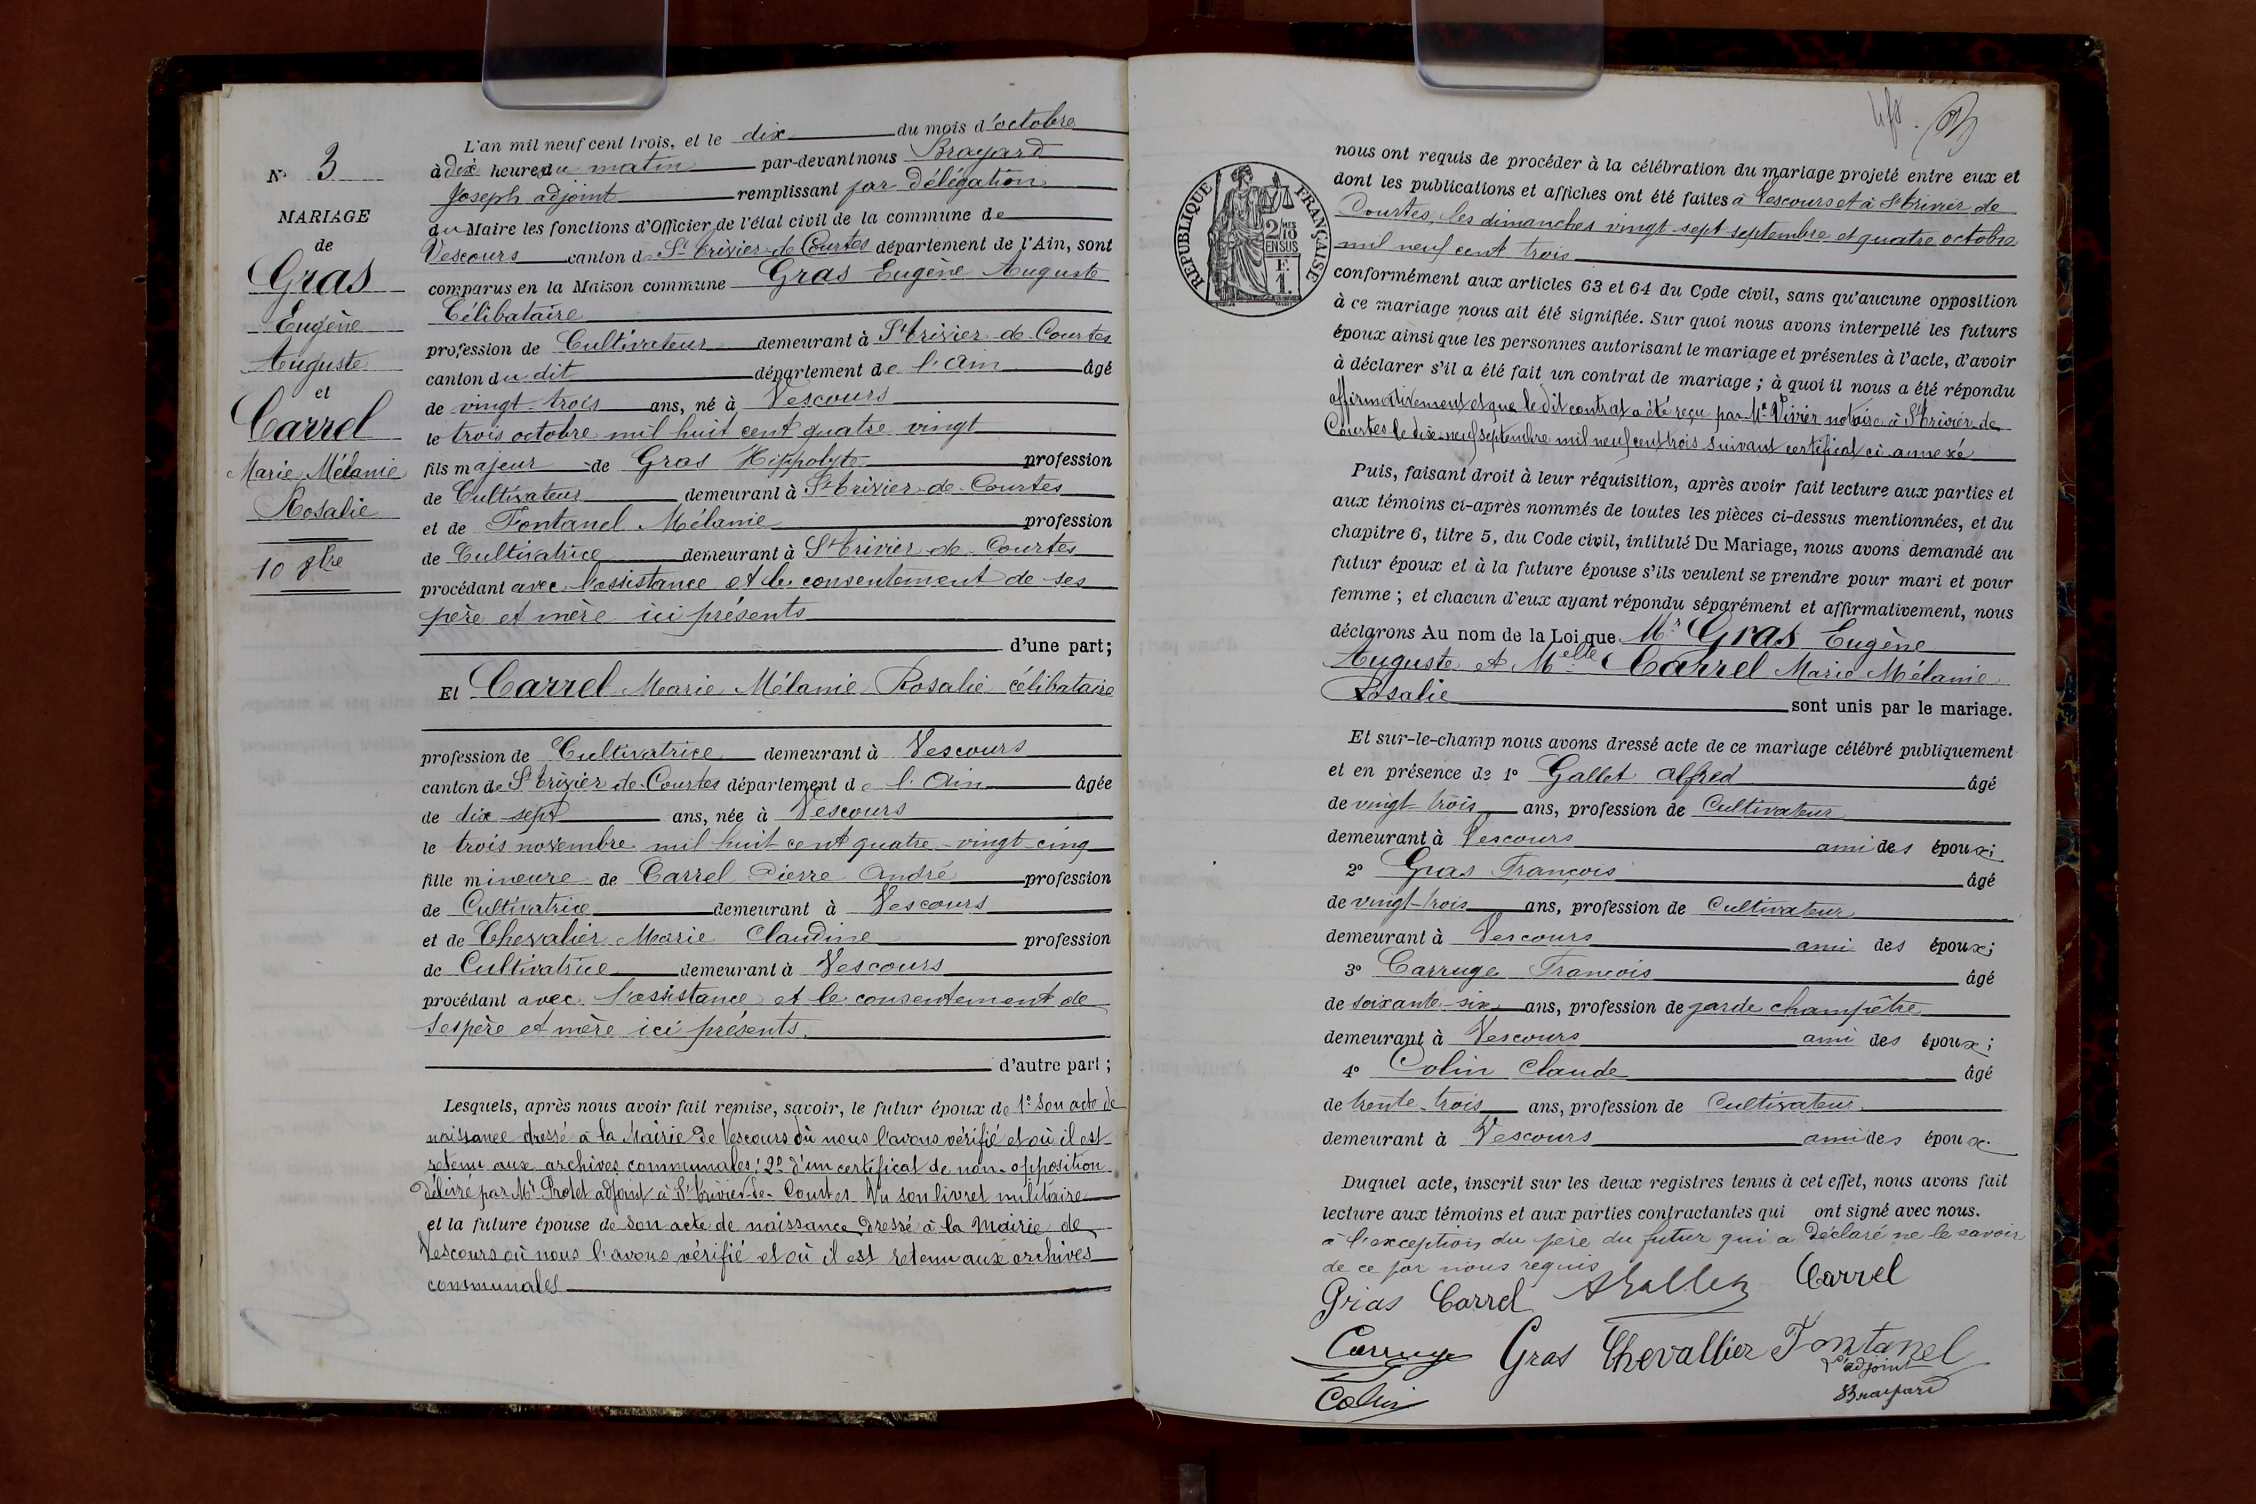 N° 3
MARIAGE
de
Gras
Eugène
Auguste
et
Carrel
Marie Mélanie
Rosalie
10 8bre
L'an mil neuf cent trois, et le dix du mois d'octobre
à dix heures du matin par-devant nous Brayard
Joseph adjoint remplissant par délégation
du Maire les fonctions d'Officier de l'état civil de la commune de
Vescours canton de St Trivier de Courtes département de l'Ain, sont
comparus en la Maison commune Gras Eugène Auguste
Célibataire
profession de Cultivateur demeurant à St Trivier de Courtes
canton du dit département de l'Ain âgé
de vingt-trois ans, né à Vescours
le trois octobre mil huit cent quatre vingt
fils majeur de Gras Hippolyte profession
de Cultivateur demeurant à St Trivier-de-Courtes
et de Fontanel Mélanie profession
de Cultivatrice demeurant à St Trivier de Courtes
procédant avec l'assistance et le consentement de ses
père et mère ici présents
d'une part;
Et Carrel Marie Mélanie Rosalie célibataire
profession de Cultivatrice demeurant à Vescours
canton de St Trivier de Courtes département de l'Ain âgée
de dix-sept ans, née à Vescours
le trois novembre mil huit cent quatre-vingt-cinq
fille mineure de Carrel Pierre André profession
de Cultivatrice demeurant à Vescours
et de Chevalier Marie Claudine profession
de Cultivatrice demeurant à Vescours
procédant avec l'assistance et le consentement de
ses père et mère ici présents.
d'autre part;
Lesquels, après nous avoir fait remise, savoir, le futur époux de 1° son acte de
naissance dressé à la Mairie de Vescours où nous l'avons vérifié et où il est
retenu aux archives communales; 2° d'un certificat de non-opposition
délivré par Mr Protet adjoint à St Trivier-de-Courtes. Vu son livret militaire
et la future épouse de son acte de naissance dressé à la Mairie de
Vescours où nous l'avons vérifié et où il est retenu aux archives
communales
RÉPUBLIQUE FRANÇAISE
2/10MES
EN SUS
F.
1.
nous ont requis de procéder à la célébration du mariage projeté entre eux et
dont les publications et affiches ont été faites à Vescours et à St Trivier de
Courtes, les dimanches vingt-sept septembre et quatre octobre
mil neuf cent trois
conformément aux articles 63 et 64 du Code civil, sans qu'aucune opposition
à ce mariage nous ait été signifiée. Sur quoi nous avons interpellé les futurs
époux ainsi que les personnes autorisant le mariage et présentes à l'acte, d'avoir
à déclarer s'il a été fait un contrat de mariage; à quoi il nous a été répondu
affirmativement et que le dit contrat a été reçu par Me Vivier notaire à St Trivier de
Courtes le dix-neuf septembre mil neuf cent trois suivant certificat ci-annexé
Puis, faisant droit à leur réquisition, après avoir fait lecture aux parties et
aux témoins ci-après nommés de toutes les pièces ci-dessus mentionnées, et du
chapitre 6, titre 5, du Code civil, intitulé Du Mariage, nous avons demandé au
futur époux et à la future épouse s'ils veulent se prendre pour mari et pour
femme; et chacun d'eux ayant répondu séparément et affirmativement, nous
déclarons Au nom de la Loi que Mr Gras Eugène
Auguste et Melle Carrel Marie Mélanie
Rosalie sont unis par le mariage.
Et sur-le-champ nous avons dressé acte de ce mariage célébré publiquement
et en présence de 1° Gallet Alfred âgé
de vingt-trois ans, profession de Cultivateur
demeurant à Vescours ami des époux;
2° Gras François âgé
de vingt-trois ans, profession de Cultivateur
demeurant à Vescours ami des époux;
3° Carruge François âgé
de soixante-six ans, profession de garde champêtre
demeurant à Vescours ami des époux;
4° Colin Claude âgé
de trente-trois ans, profession de Cultivateur
demeurant à Vescours ami des époux.
Duquel acte, inscrit sur les deux registres tenus à cet effet, nous avons fait
lecture aux témoins et aux parties contractantes qui ont signé avec nous.
à l'exception du père du futur qui a déclaré ne le savoir
de ce par nous requis
Gras Carrel AGallet Carrel
Carruge Gras Chevallier Fontanel
L'adjoint
Colin Brayard